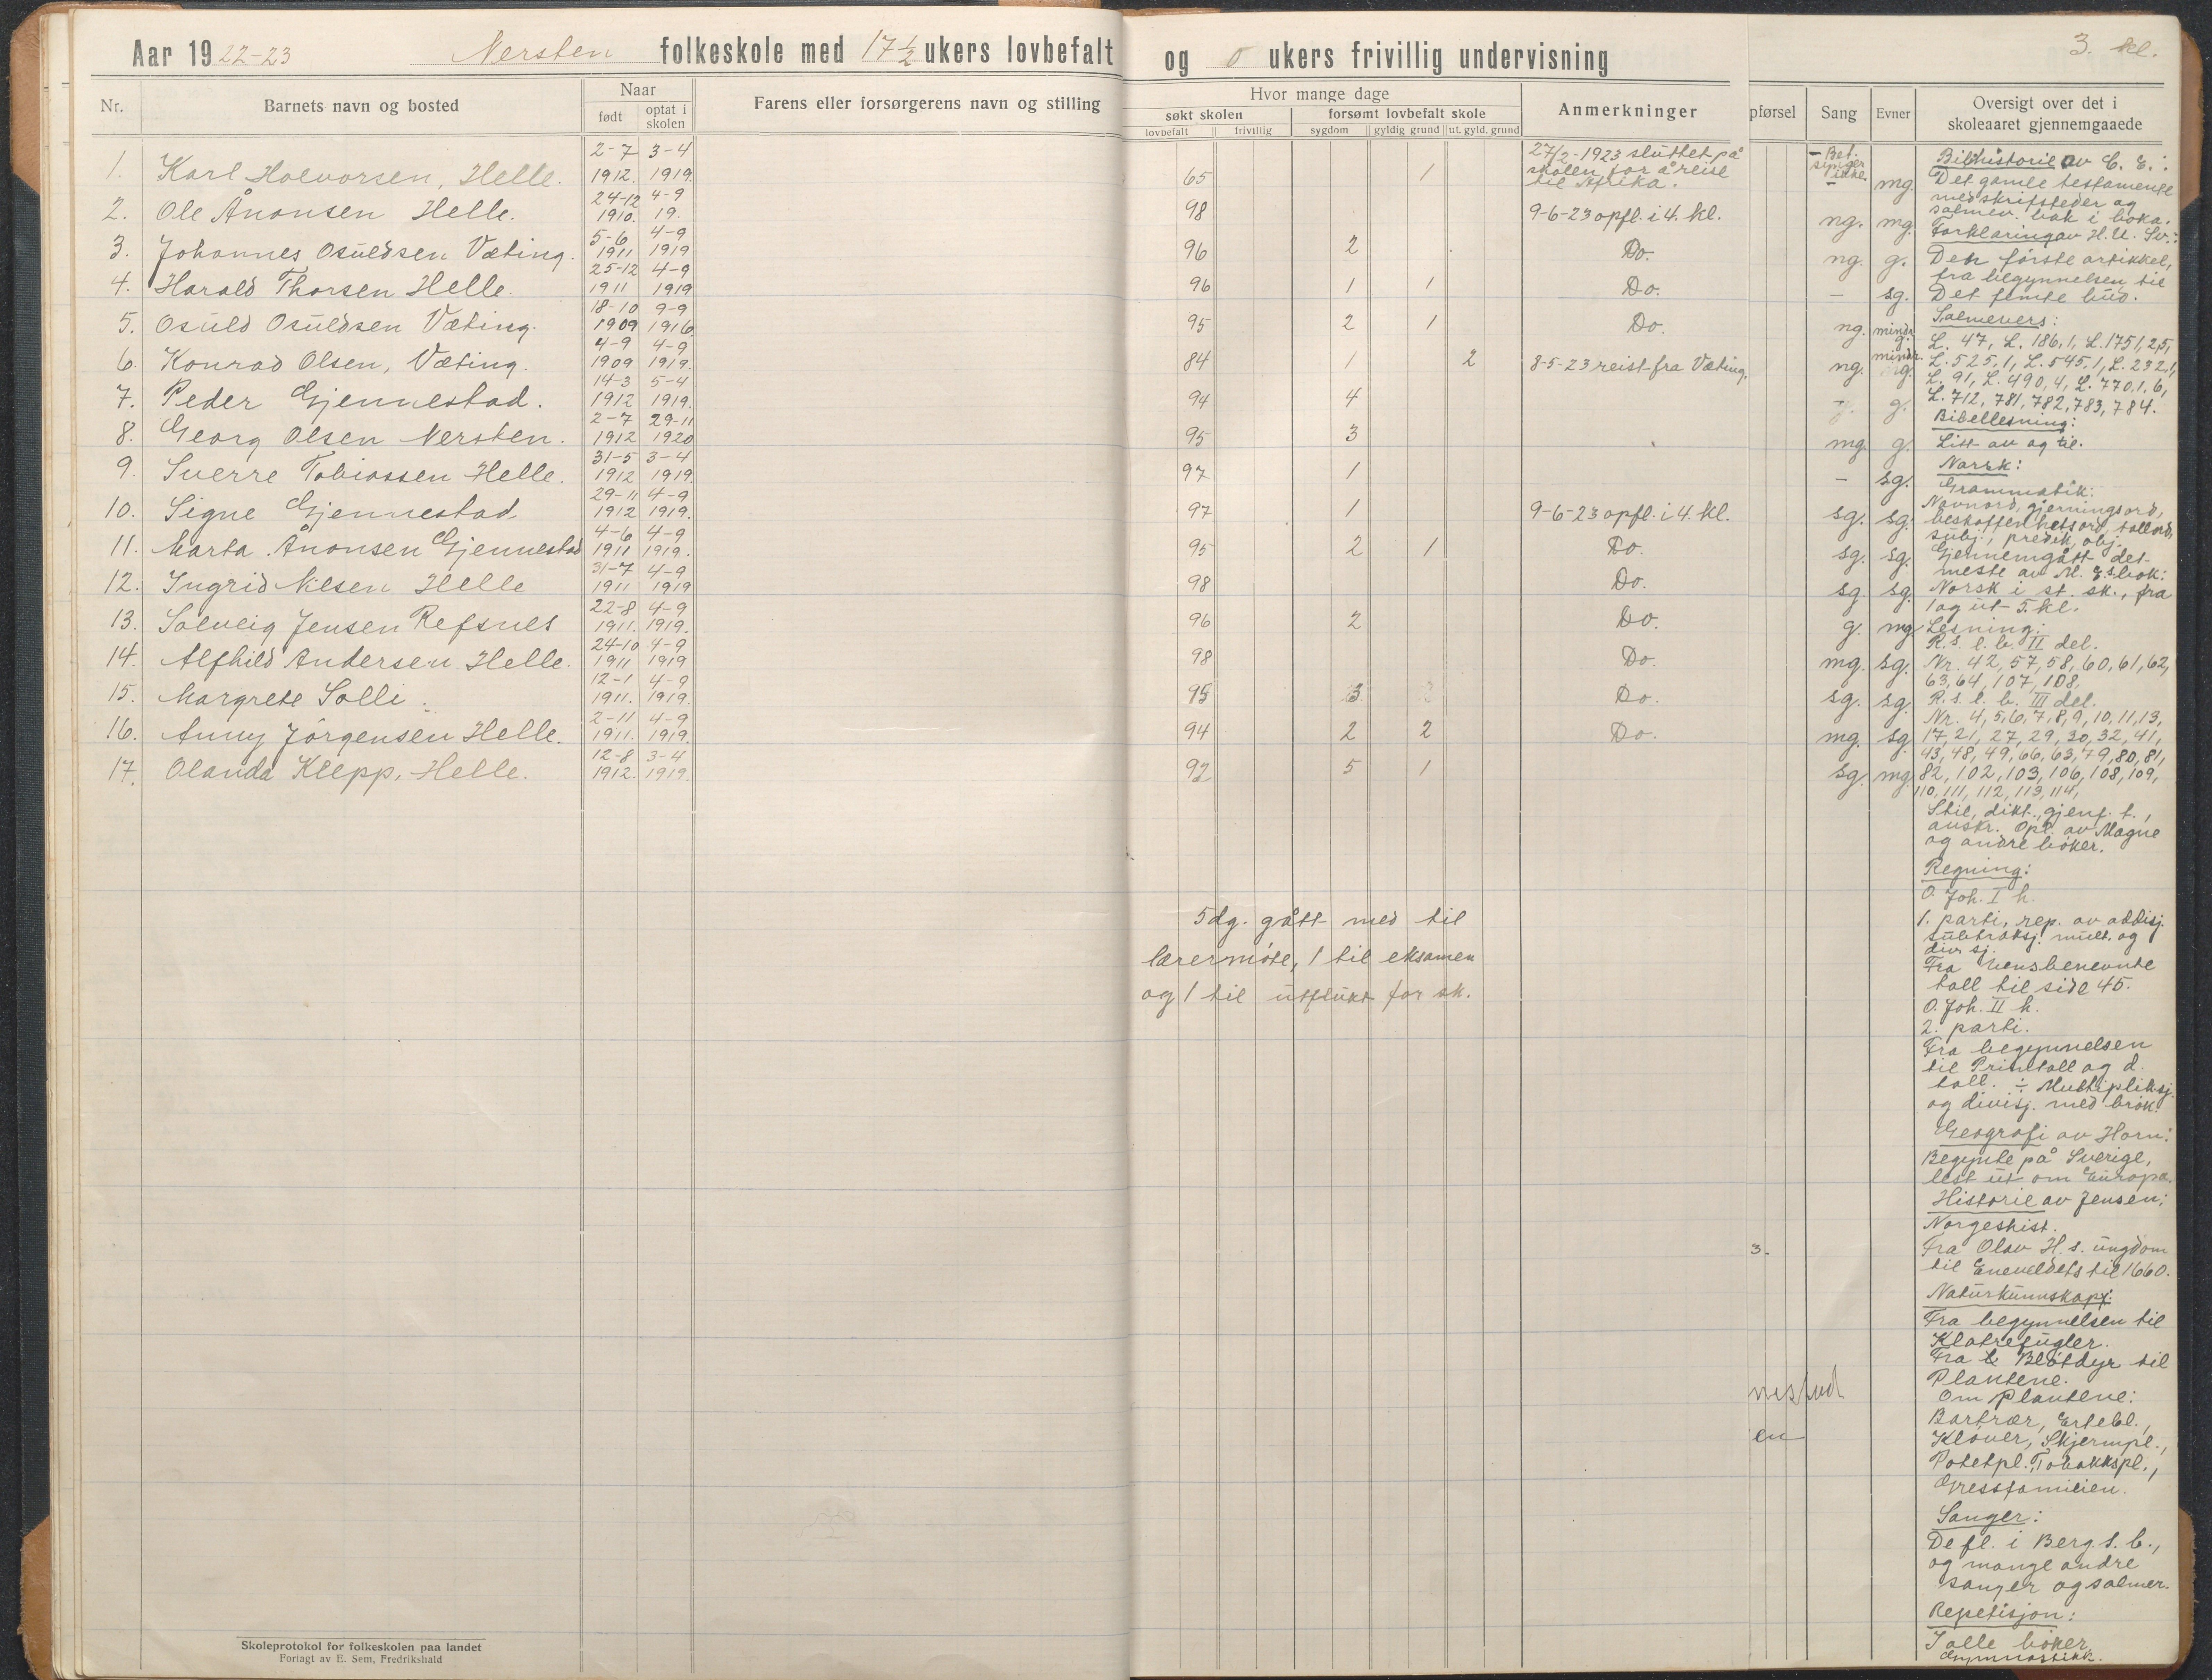 Aar 1922-23 Nersten folkeskole med 17 1/2 ukers lovbefalt og 0 ukers frivillig undervisning
3. kl.
Nr. Barnets navn og bosted Naar født optat i skolen Farens eller forsørgerens navn og stilling
Hvor mange dage
søkt skolen forsømt lovbefalt skole Anmerkninger
lovbefalt frivillig sygdom gyldig grund ut. gyld. grund
pførsel Sang Evner Oversigt over det i skoleaaret gjennemgaaede
1. Karl Halvorsen, Helle. 2-7 1912. 3-4 1919. 65 1 27/2-1923 sluttet på skolen for å reise til Afrika. - Bet. synger ikke.
2. Ole Ånonsen Helle. 24-12 1910. 4-9 19. 98 9-6-23 opfl. i 4. kl.
3. Johannes Osuldsen Væting. 5-6 1911 4-9 1919 96 2 Do.
4. Harald Thorsen Helle. 25-12 1911 4-9 1919 96 1 1 Do.
5. Osuld Osuldsen Væting. 18-10 1909 9-9 1916 95 2 1 Do.
6. Konrad Olsen, Væting. 4-9 1909 4-9 1919. 84 1 2 8-5-23 reist fra Væting.
7. Peder Gjennestad. 14-3 1912 5-4 1919. 94 4
8. Georg Olsen Nersten. 2-7 1912 29-11 1920 95 3
9. Sverre Tobiassen Helle. 31-5 1912 3-4 1919. 97 1
10. Signe Gjennestad 29-11 1912 4-9 1919. 97 1 9-6-23 opfl. i 4. kl.
11. Marta Ånonsen Gjennestad 4-6 1911 4-9 1919. 95 2 1 Do.
12. Ingrid Nilsen Helle 31-7 1911 4-9 1919 98 Do.
13. Solveig Jensen Refsnes 22-8 1911. 4-9 1919. 96 2 Do.
14. Alfhild Andersen Helle. 24-10 1911 4-9 1919 98 Do.
15. Margrete Solli. 12-1 1911. 4-9 1919. 95 3 Do.
16. Anny Jörgensen Helle. 2-11 1911. 4-9 1919. 94 2 2 Do.
17. Olanda Klepp, Helle. 12-8 1912. 3-4 1919. 92 5 1
5 dg. gått med til
lærermöte, 1 til eksamen
og 1 til utflukt for sk.
- mg.
ng. mg.
ng. g.
- sg.
ng. mindr. g.
ng. mindr. g.
g.
mg. g.
- sg.
sg. sg.
sg. sg.
sg. sg.
g. mg.
mg. sg.
sg. sg.
mg. sg.
sg. mg.
Bibhistorie av C. E.:
Det gamle testamente
med skriftsteder og
salmev. bak i boka.
Forklaring av H. U. Sv.:
Den förste artikkel,
fra begynnelsen til
Det femte bud.
Salmevers:
L. 47, L. 186,1, L. 175 1,2,5,
L. 525,1, L. 545,1, L. 232,1,
L. 91, L. 490,4, L. 770 1,6,
L. 712, 781, 782, 783, 784.
Bibellesning:
Litt av og til.
Norsk:
Grammatik:
Navnord, gjerningsord,
beskaffenhetsord, tallord,
subj., predik, obj.
Gjennemgått det
meste av M. E.s bok:
Norsk i st. sk., fra
1 og ut 5. kl.
Lesning:
R. S. l. b. II del.
Nr. 42, 57, 58, 60, 61, 62,
63, 64, 107, 108,
R. S. l. b. III del.
Nr. 4, 5, 6, 7, 8, 9, 10, 11, 13,
17, 21, 27, 29, 30, 32, 41,
43, 48, 49, 66, 63, 79, 80, 81,
82, 102, 103, 106, 108, 109,
110, 111, 112, 113, 114,
Stil, dikt., gjenf. t.,
avskr. Opl. av Magne
og andre böker.
Regning:
O. Joh. I h.
1. parti, rep. av addisj.
subtraksj. mult. og
divsj.
Fra bensbenevnte
tall til side 45.
O. Joh. II h.
2. parti.
Fra begynnelsen
til Primtall og d.
tall. ÷ Multipliksj.
og divisj. med brök.
Geografi av Horn:
Begynte på Sverige,
lest ut om Europa.
Historie av Jensen:
Norgeshist.
3. Fra Olav H. s. ungdom
til Eneveldets til 1660.
Naturkunnskap:
Fra begynnelsen til
Klatrefugler.
Fra Blötdyr til
Plantene.
nestad Om Plantene:
Bartrær, Ertebl.,
en Klöver, Skjermpl.,
Potetpl. Tobakkspl.,
Gressfamilien.
Sanger:
De fl. i Berg. s. b.,
og mange andre
sanger og salmer.
Repetisjon:
I alle böker.
Gymnastikk.
Skoleprotokol for folkeskolen paa landet
Forlagt av E. Sem, Fredrikshald